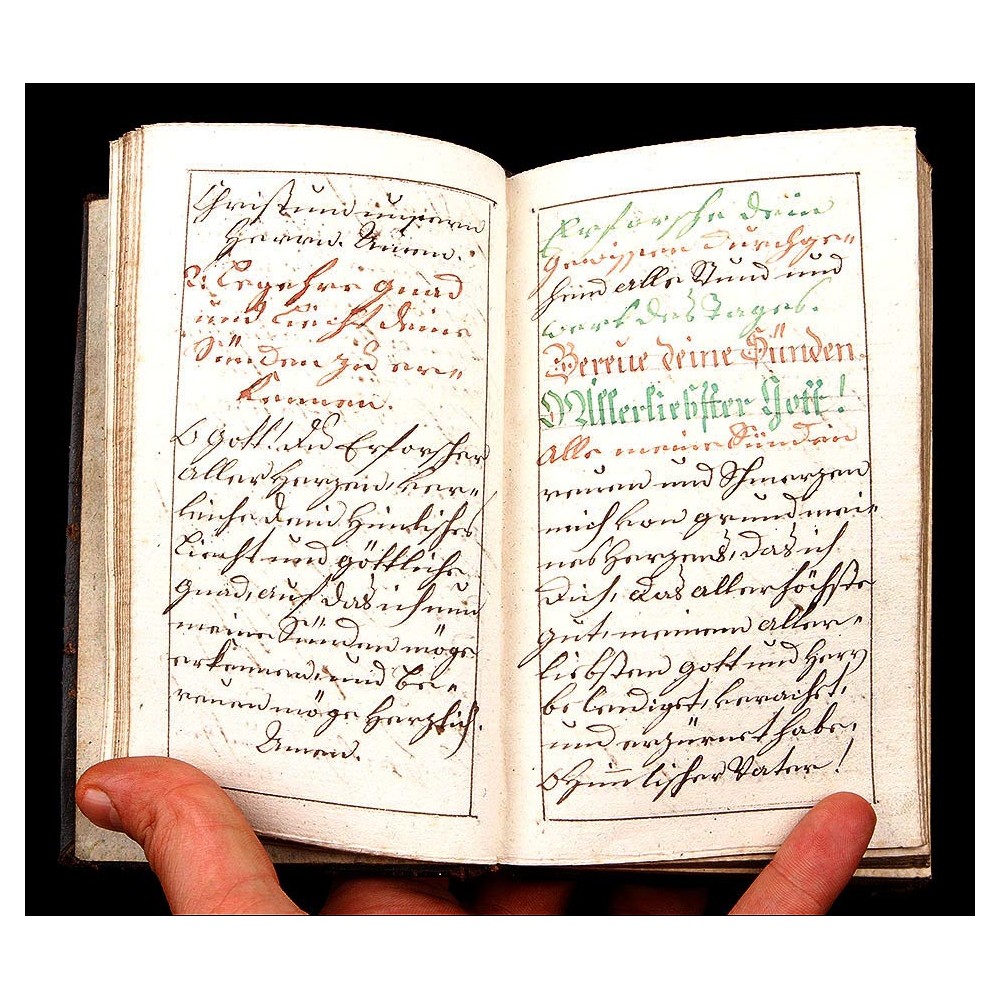 Christum unsern
Herrn. Amen.
2: Begehre gnad
und Liecht deine
Sünden zu er=
kennen.
O Gott! du Erforscher
aller Herzen, ver=
leihe dein Himlisches
Liecht und göttliche
gnad, auf das ich nun
meine Sünden möge
erkennen, und be=
reuen möge Herzlich.
Amen.
Erforsche dein
gewissen durchge=
hend alle Stund und
werk des Tages.
Bereue deine Sünden.
O Allerliebster Gott!
alle meine Sünden
reuen und Schmerzen
mich von grund mei=
nes Herzens, das ich
Dich, das allerhöchste
gut, meinem aller=
liebsten Gott und Herr
beleidiget, verachet,
und erzürnet habe,
O Himlischer Vater!